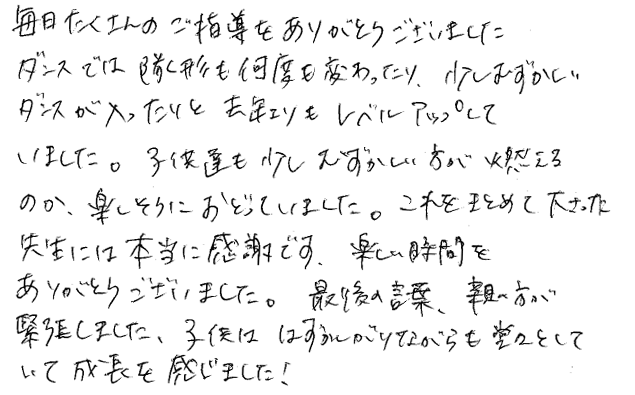 毎日たくさんのご指導をありがとうございました
ダンスでは隊形も何度も変わったり、少しむずかしい
ダンスが入ったりと去年よりもレベルアップして
いました。子供達も少しむずかしい方が燃える
のか、楽しそうにおどっていました。これをまとめて下さった
先生には本当に感謝です、楽しい時間を
ありがとうございました。最後の言葉、親の方が
緊張しました、子供ははずかしがりながらも堂々として
いて成長を感じました!